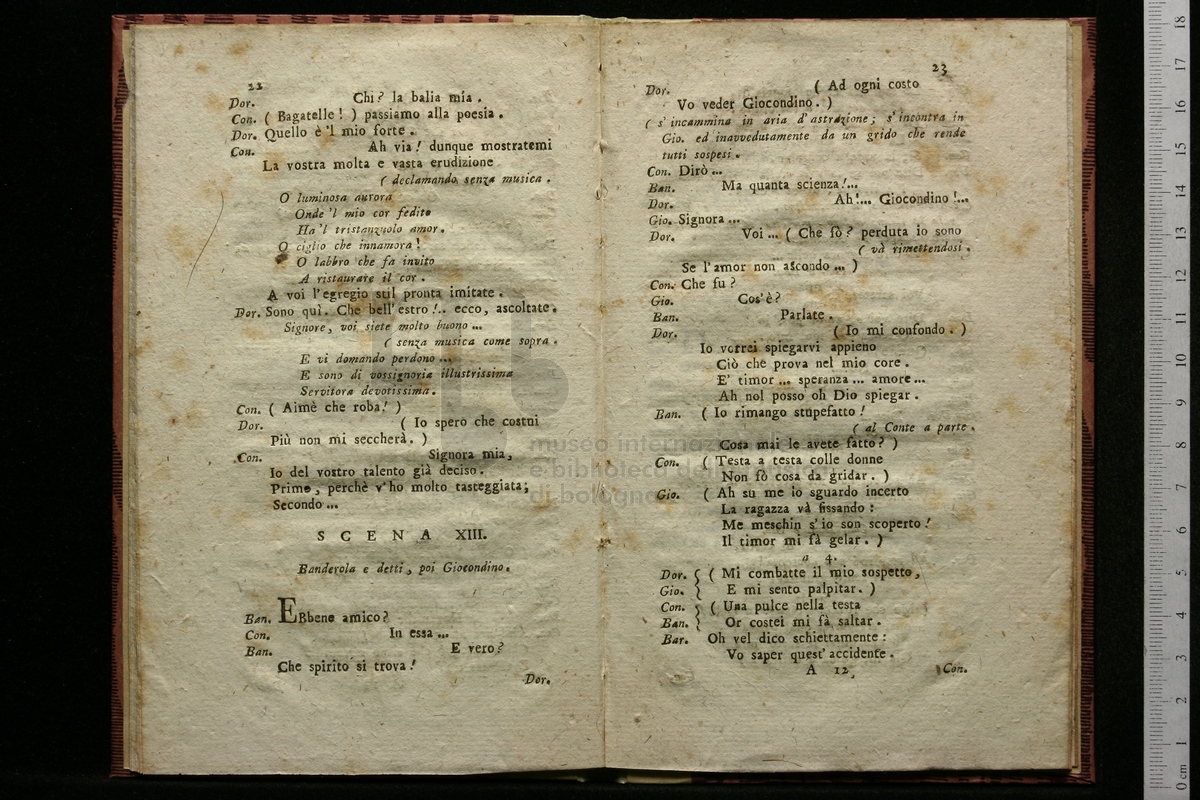 22
Dor. Chi? la balia mia.
Con. ( Bagatelle! ) passiamo alla poesia.
Dor. Quello è 'l mio forte.
Con. Ah via! dunque mostratemi
La vostra molta e vasta erudizione
( declamando senza musica.
O luminosa aurora
Onde 'l mio cor fedite
Ha 'l tristanzuolo amor.
O ciglio che innamora!
O labbro che fa invito
A ristaurare il cor.
A voi l'egregio stil pronta imitate.
Dor. Sono quì. Che bell'estro!.. ecco, ascoltate.
Signore, voi siete molto buono ...
( senza musica come sopra.
E vi domando perdono ...
E sono di vossignoria illustrissima
Servitora devotissima.
Con. ( Aimè che roba! )
Dor. ( Io spero che costui
Più non mi seccherà. )
Con. Signora mia,
Io del vostro talento già deciso.
Prime, perchè v'ho molto tasteggiata;
Secondo ...
SCENA XIII.
Banderola e detti, poi Giocondino.
Ban. EBbene amico?
Con. In essa ...
Ban. E vero?
Che spirito si trova!
Dor.
23
Dor. ( Ad ogni costo
Vo veder Giocondino. )
( s'incammina in aria d'astrazione; s'incontra in
Gio. ed inavvedutamente da un grido che rende
tutti sospesi.
Con. Dirò ...
Ban. Ma quanta scienza!...
Dor. Ah!... Giocondino!...
Gio. Signora ...
Dor. Voi ... ( Che fò? perduta io sono
( và rimettendosi.
Se l'amor non ascondo ... )
Con. Che fu?
Gio. Cos'è?
Ban. Parlate.
Dor. ( Io mi confondo. )
Io vorrei spiegarvi appieno
Ciò che prova nel mio core.
E' timor ... speranza ... amore ...
Ah nol posso oh Dio spiegar.
Ban. ( Io rimango stupefatto!
( al Conte a parte.
Cosa mai le avete fatto? )
Con. ( Testa a testa colle donne
Non sò cosa da gridar. )
Gio. ( Ah su me lo sguardo incerto
La ragazza và fissando:
Me meschin s'io son scoperto!
Il timor mi fà gelar. )
a 4.
Dor. { ( Mi combatte il mio sospetto,
Gio. { E mi sento palpitar. )
Con. } ( Una pulce nella testa
Ban. } Or costei mi fà saltar.
Bar. Oh vel dico schiettamente:
Vo saper quest'accidente.
A 12
Con.
museo internaz
e biblioteca della
di bologna